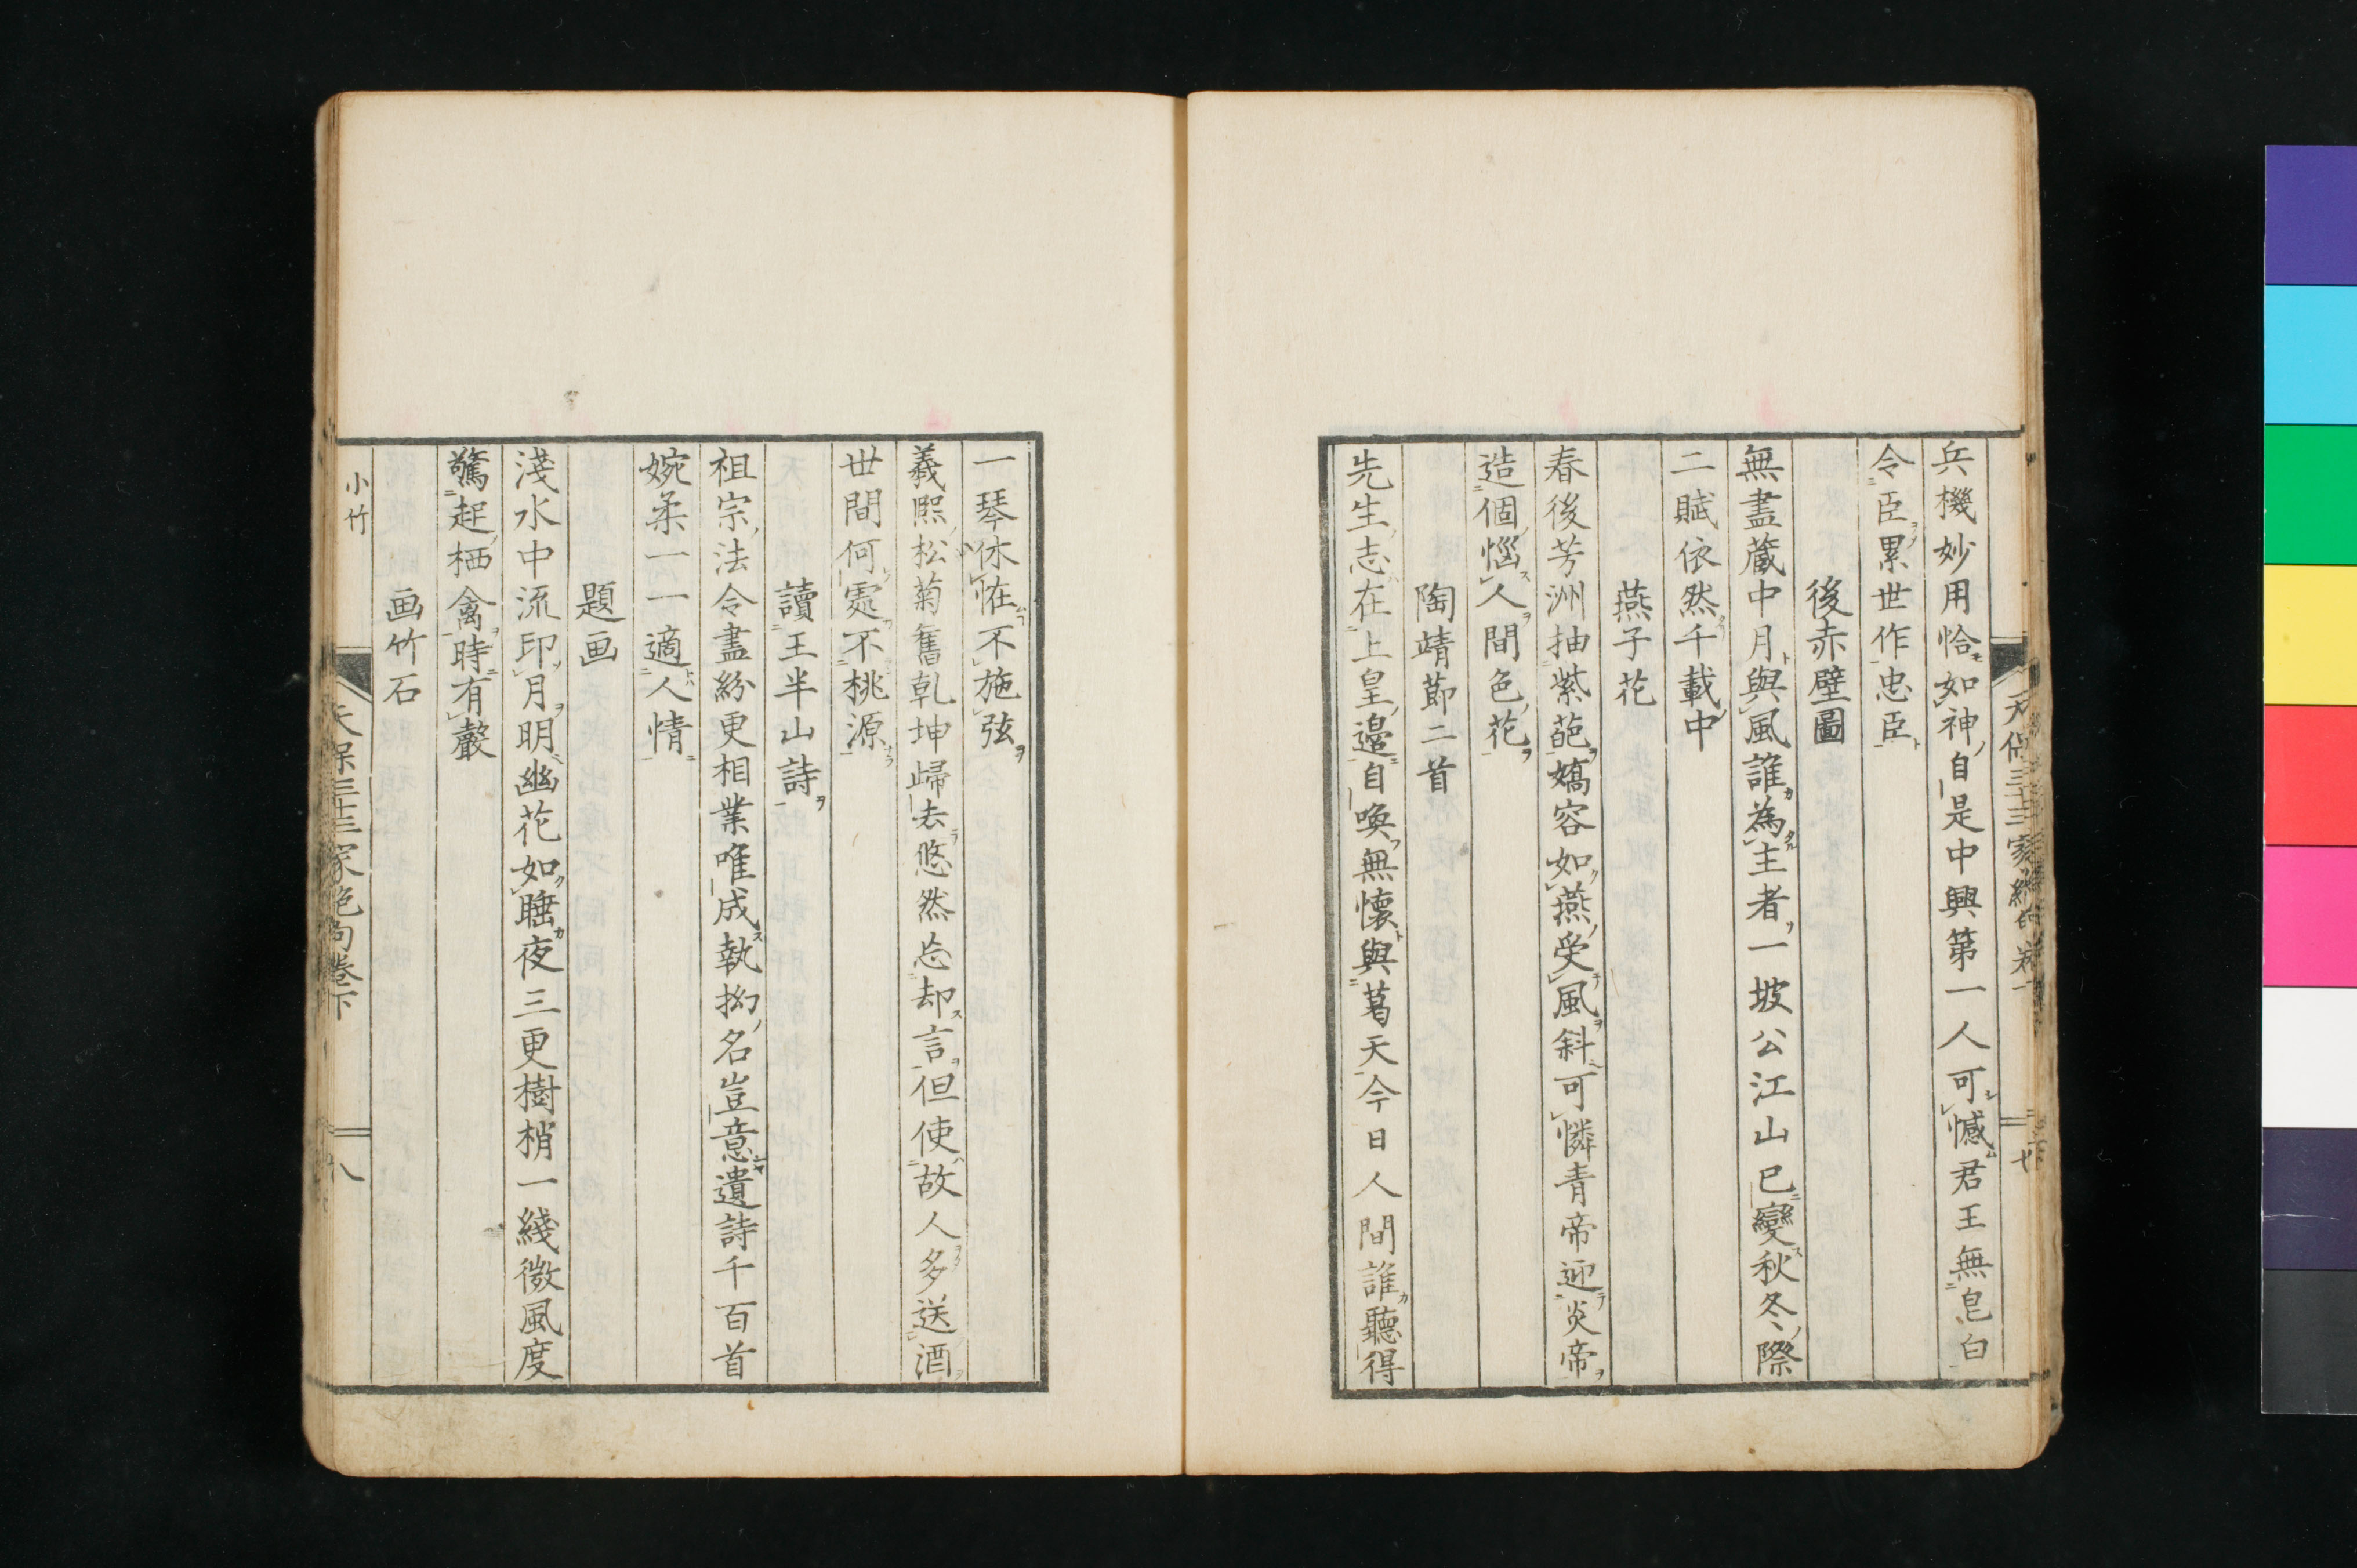 兵機妙用恰如神自是中興第一人可憾君王無皂白
令臣累世作忠臣
後赤壁圖
無盡藏中月與風誰為主者一坡公江山已變秋冬際
二賦依然千載中
燕子花
春後芳洲抽紫葩嬌容如燕受風斜可憐青帝迎炎帝
造個惱人間色花
陶靖節二首
先生志在上皇邊自喚無懷與葛天今日人間誰聽得
一琴休恠不施弦
羲熙松菊舊乾坤歸去悠然忘却言但使故人多送酒
世間何處不桃源
讀王半山詩
祖宗法令盡紛更相業唯成執拗名豈意遺詩千百首
婉柔一一適人情
題画
淺水中流印月明幽花如睡夜三更樹梢一綫微風度
驚起栖禽時有聲
画竹石
小竹
天保三十三家絶句卷下
八